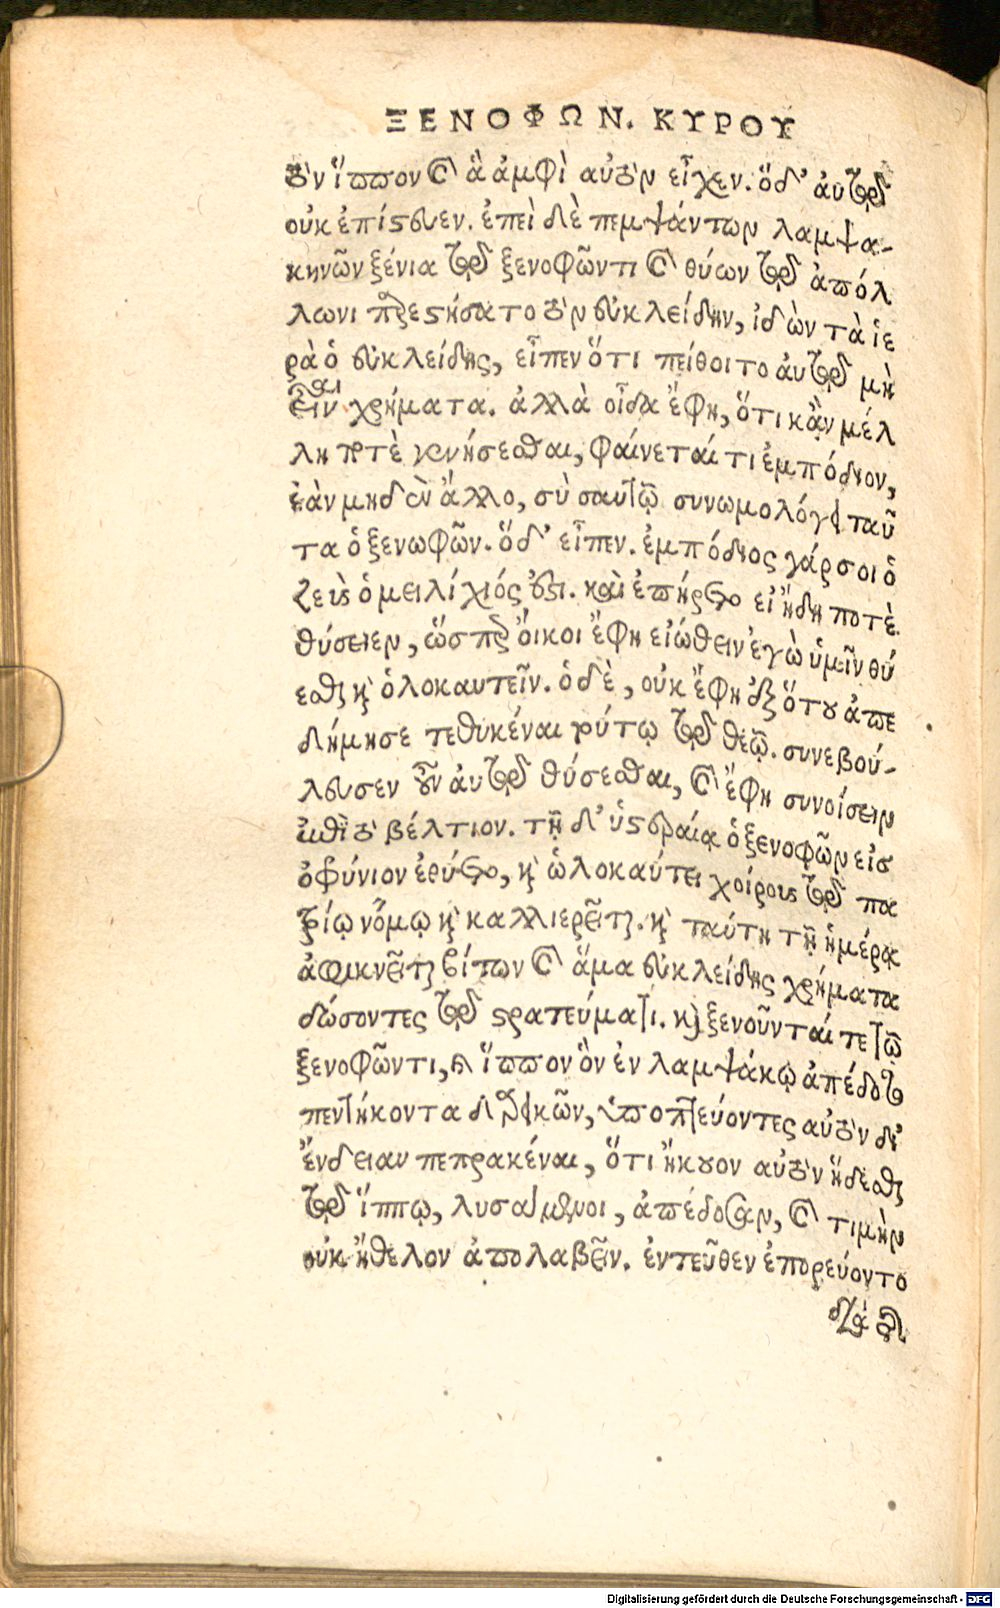 ΞΕΝΟΦΩΝ. ΚΥΡΟΥ
τὸν ἵππον καὶ ἃ ἀμφὶ αὐτὸν εἶχεν. ὅδ' ἀυτῷ
οὐκ ἐπίστευεν. ἐπεὶ δὲ πεμψάντων λαμψα-
κηνῶν ξένια τῷ ξενοφῶντι καὶ θύων τῷ ἀπόλ
λωνι παρεστήσατο τὸν εὐκλείδην, ἰδὼν τὰ ἱε
ρὰ ὁ εὐκλείδης, εἶπεν ὅτι πείθοιτο ἀυτῷ μὴ
εἶναι χρήματα. ἀλλὰ οἶδα ἔφη, ὅτι κἂν μέλ
λῃ ποτὲ γενήσεσθαι, φαίνεταί τι ἐμπόδιον,
ἐὰν μηδὲν ἄλλο, σὺ σαυτῷ συνωμολόγει ταῦ
τα ὁ ξενωφῶν. ὅδ' εἶπεν. ἐμπόδιος γάρ σοι ὁ
ζεὺς ὁ μειλίχιός ἐστι. καὶ ἐπήρετο εἰ ἤδη ποτὲ
θύσειεν, ὥσπερ ὄικοι ἔφη εἰώθειν ἐγὼ ὑμῖν θύ
εσθαι καὶ ὁλοκαυτεῖν. ὁ δὲ, οὐκ ἔφη ἐξ ὅτου ἀπε
δήμησε τεθυκέναι τούτῳ τῷ θεῷ. συνεβού-
λευσεν οὖν ἀυτῷ θύσεσθαι, καὶ ἔφη συνοίσειν
ἐπὶ τὸ βέλτιον. τῇ δ' ὑστεραίᾳ ὁ ξενοφῶν εἰσ
ὀφύνιον ἐρύετο, καὶ ὡλοκαύτει χοίρους τῷ πα
τρίῳ νόμῳ καὶ καλλιερεῖται. καὶ ταύτη τῇ ἡμέρᾳ
ἀφικνεῖται βίτων καὶ ἅμα εὐκλείδης χρήματα
δώσοντες τῷ στρατεύματι. καὶ ξενοῦνταί τε τῷ
ξενοφῶντι, καὶ ἵππον ὃν ἐν λαμψάκῳ ἀπέδοτο
πεντήκοντα δαρεικῶν, ὑποπτεύοντες αὐτὸν δι'
ἔνδειαν πεπρακέναι, ὅτι ἤκουον αὐτὸν ἥδεσθαι
τῷ ἵππῳ, λυσάμενοι, ἀπέδοσαν, καὶ τιμὴν
οὐκ ἤθελον ἀπολαβεῖν. ἐντεῦθεν ἐπορεύοντο
διὰ τῆς
Digitalisierung gefördert durch die Deutsche Forschungsgemeinschaft - DFG